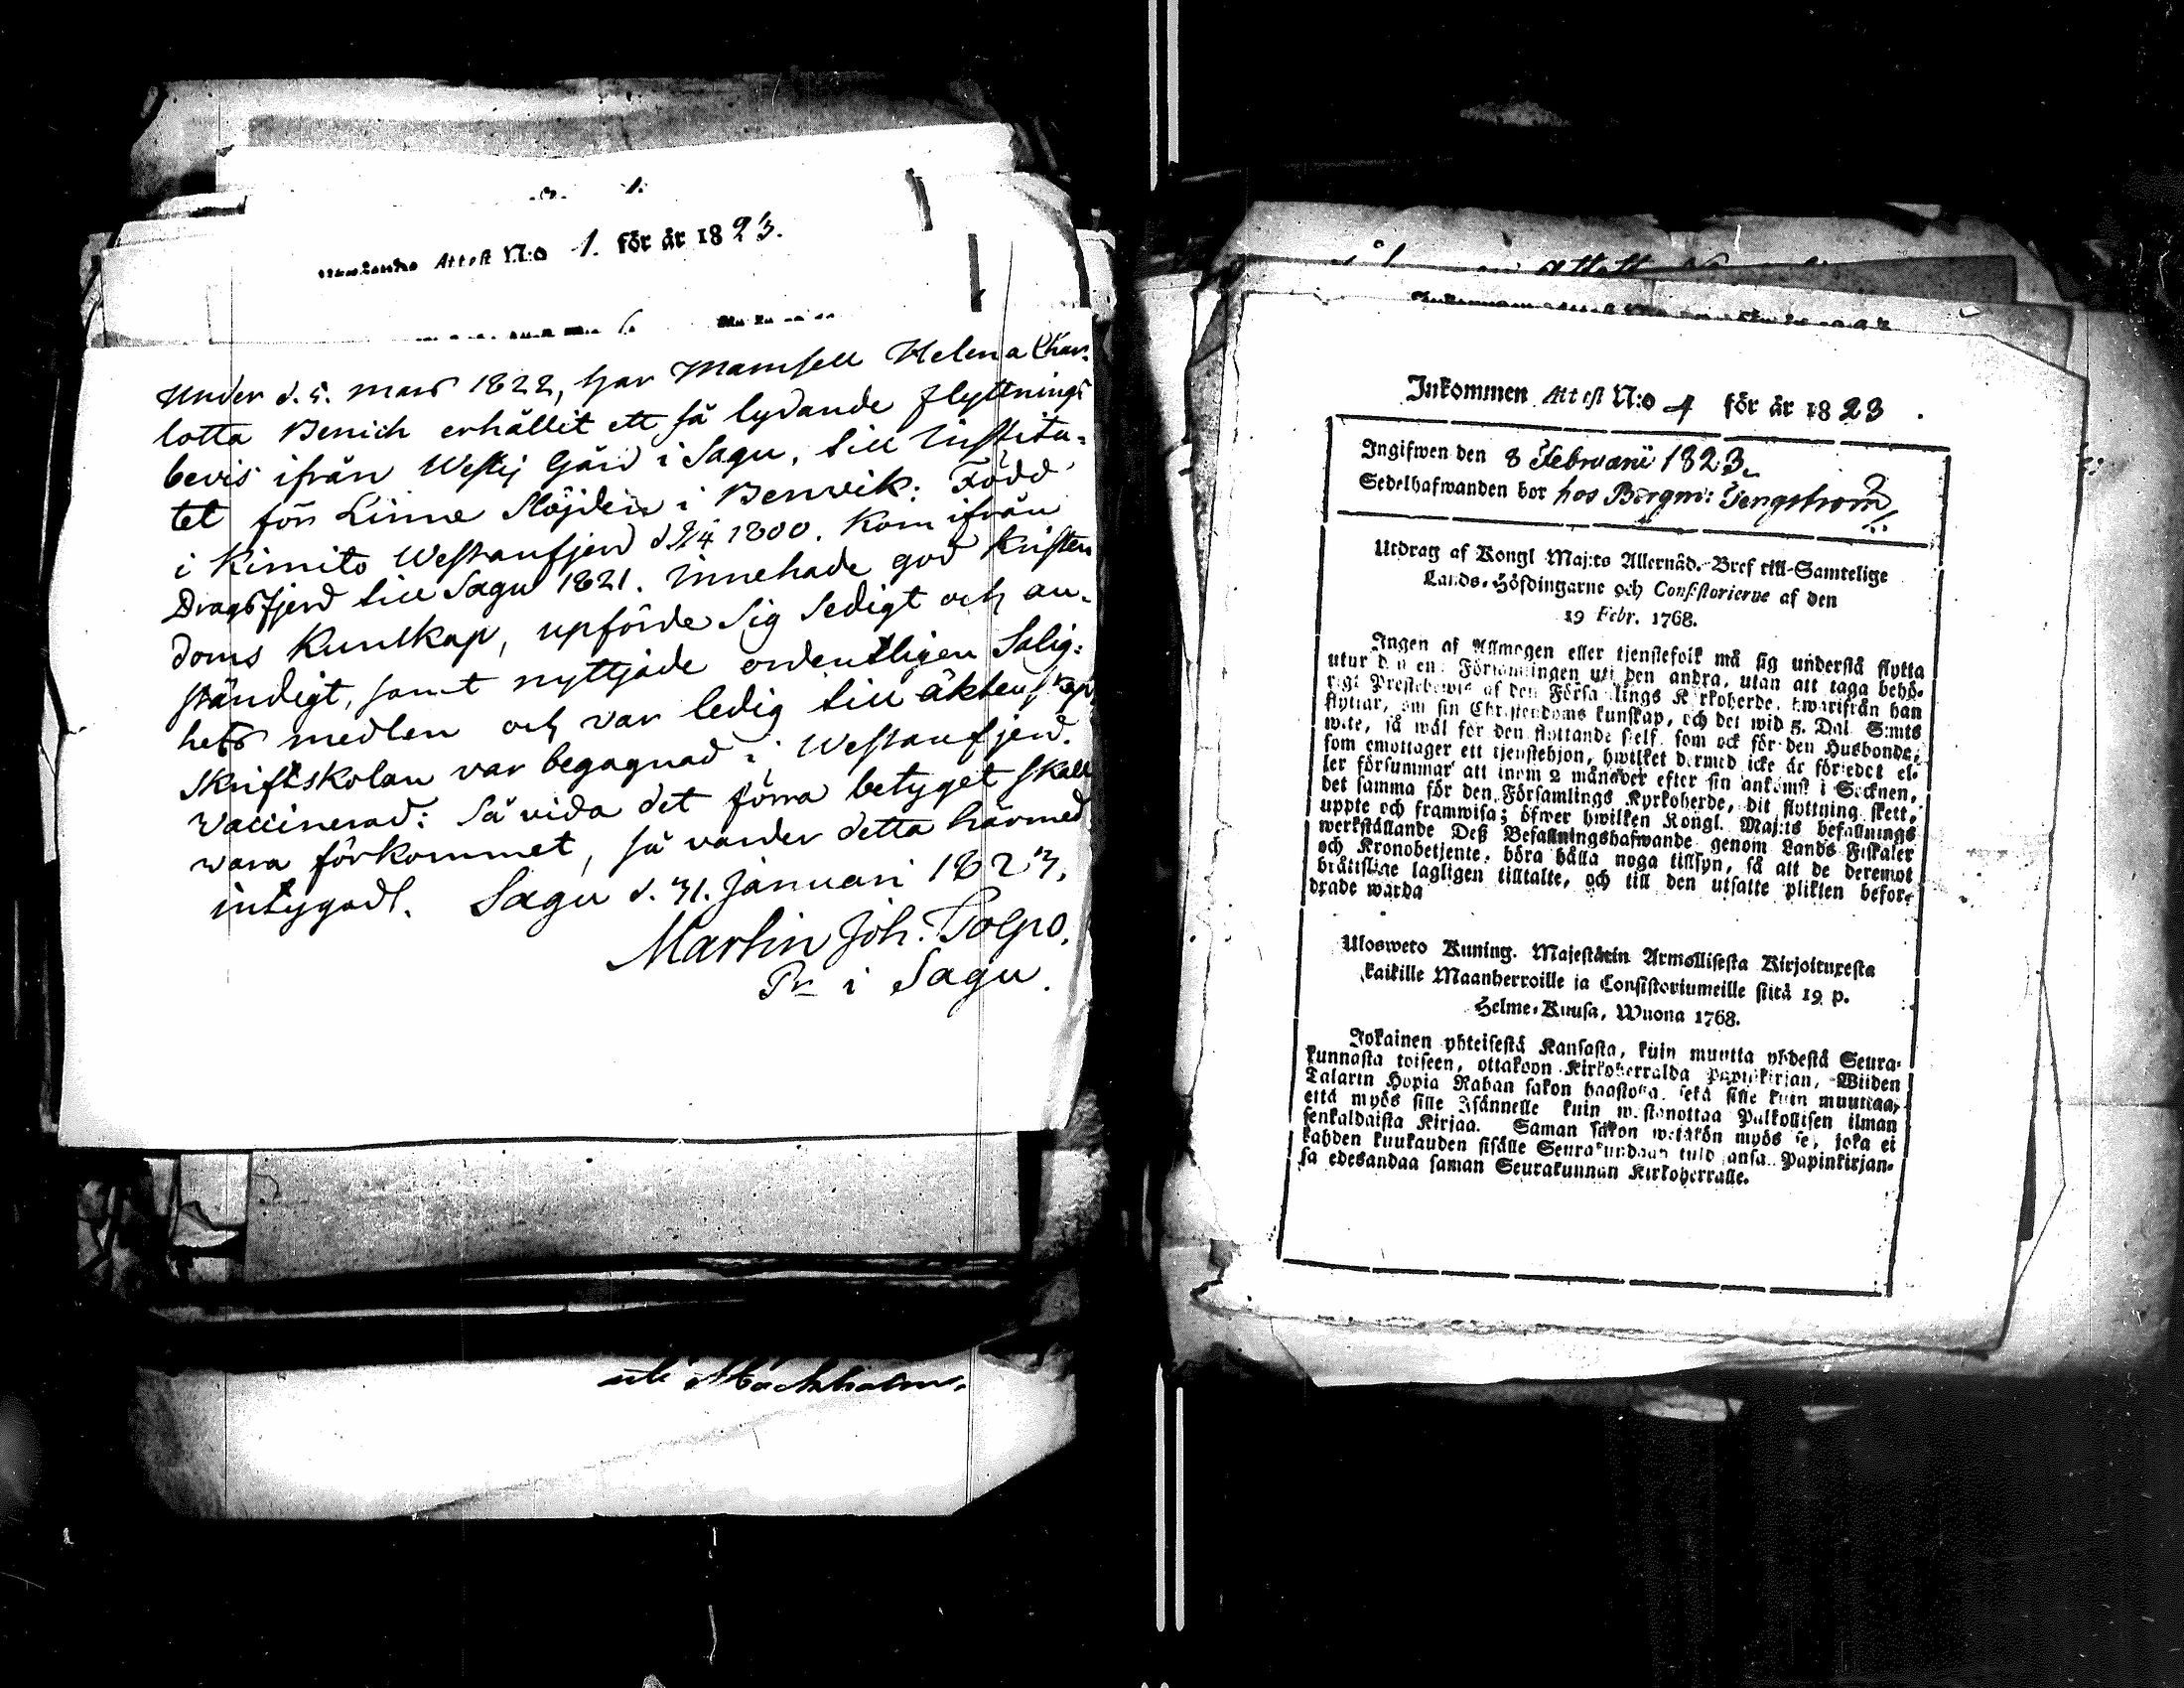 Attest N:o 1. för år 1823.
Under d. 5. mars 1822, har Mamsell Helena Char-
lotta Benich erhållit ett så lydande flyttnings
bevis ifrån Westej Gård i Sagu, till Institu=
tet för Linne Slöjden i Benvik: Född
i Kimito Westanfjerd d 1800. Kom ifrån
Dragsfjerd till Sagu 1821. Innehade god Kristen
doms Kunskap, upförde sig sedigt och an-
ständigt, samt nyttjade ordentligen Salig=
hets medlen och var ledig till äktenskap
Skriftskolan var begagnad i Westanfjerd.
Vaccinerad: Så vida det förra betyget skall
vara förkommet, så varder detta härmed
intygadt. Sagu d. 31. Januari 1823.
Martin Joh. Tolpo.
Pr i Sagu.
uti Stockholm.
Inkommen Attest N:o 4 för år 1823.
Ingifwen den 8 Februarii 1823.
Sedelhafwanden bor hos Borgm: Tengström
Utdrag af Kongl Maj:ts Allernåd. Bref till Samtelige
Lands-Höfdingarne och Consistorierne af den
19 Febr. 1768.
Ingen af Allmogen eller tjenstefolk må sig understå flytta
utur den ena Församlingen uti den andra, utan att taga behö-
rigt Prestebewis af den Församlings Kyrkoherde, hwarifrån han
flyttar, om sin Christendoms kunskap, och det wid 5. Dal. S:mts
wite, så wäl för den flyttande sjelf, som ock för den Husbonde,
som emottager ett tjenstehjon, hwilket dermed icke är försedt el-
ler försummar att inom 2 månader efter sin ankomst i Socknen,
det samma för den Församlings Kyrkoherde, dit flyttning skett,
uppte och framwisa; öfwer hwilken Kongl. Maj:ts befallnings
werkställande Deß Befallningshafwande genom Lands Fiskaler
och Kronobetjente, böra hålla noga tillsyn, så att de deremot
bråttslige lagligen tilltalte, och till den utsatte plikten befor-
drade warda
Ulosweto Kuning. Majestätin Armollisesta Kirjoituxesta
kaikille Maanherroille ja Consistoriumeille siitä 19 p.
Helme-Kuusa, Wuona 1768.
Jokainen yhteisestä Kansasta, kuin muutta yhdestä Seura-
kunnasta toiseen, ottakoon Kirkoherralda Papinkirjan, Wiiden
Talarin Hopia Rahan sakon haastolla, sekä sille kuin muuttaa,
että myös sille Isännelle kuin wastanottaa Palkollisen ilman
senkaldaista Kirjaa. Saman sakon wetäkön myös se, joka ei
kahden kuukauden sisälle Seurakundaan tuldansa, Papinkirjan-
sa edesandaa saman Seurakunnan Kirkoherralle.